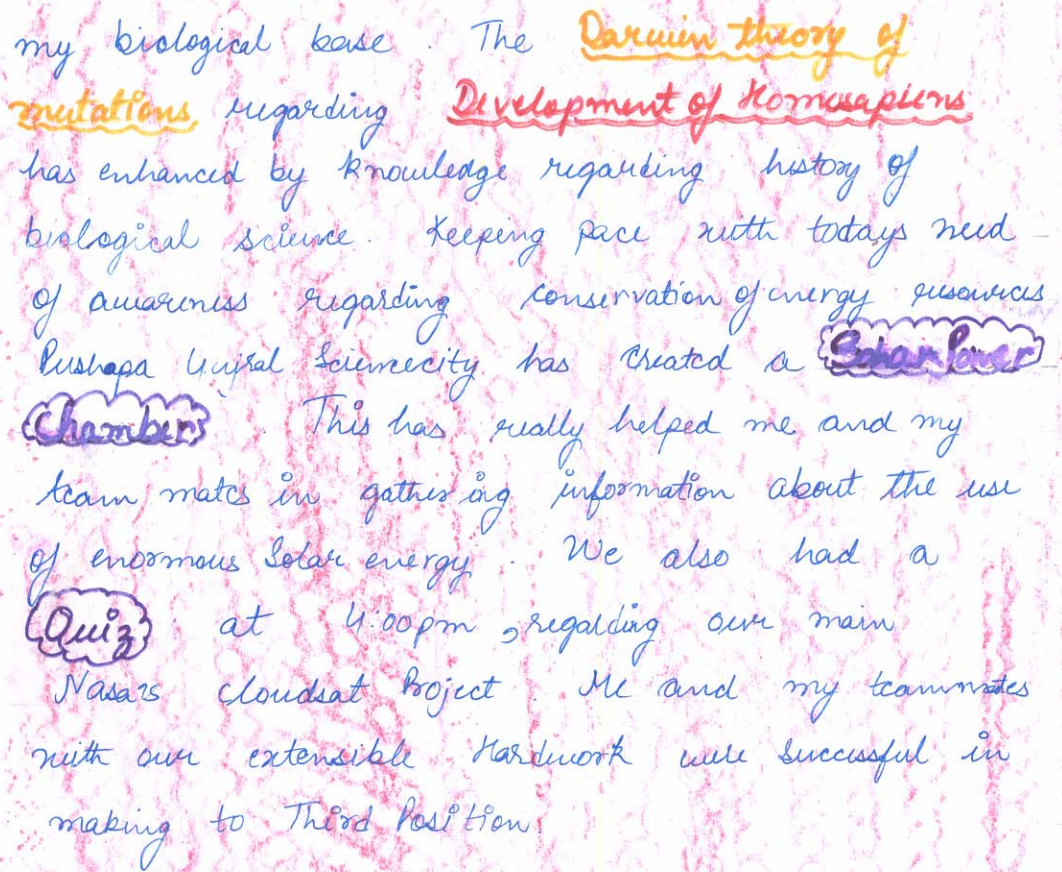 my biological base . The Darwien theory of
mutations, regarding Development of Homosapiens
has enhanced by knowledge regarding history of
biological science. Keeping pace with todays need
of awareness regarding conservation of energy resources
Pushapa Gujral Sciencecity has created a Solar Power
Chambers . This has really helped me and my
team mates in gathering information about the use
of enormous Solar energy . We also had a
Quiz at 4.00pm , regarding our main
Nasa's cloudsat Project . Me and my teammates
with our extensible Hardwork were Successful in
making to Third Position.